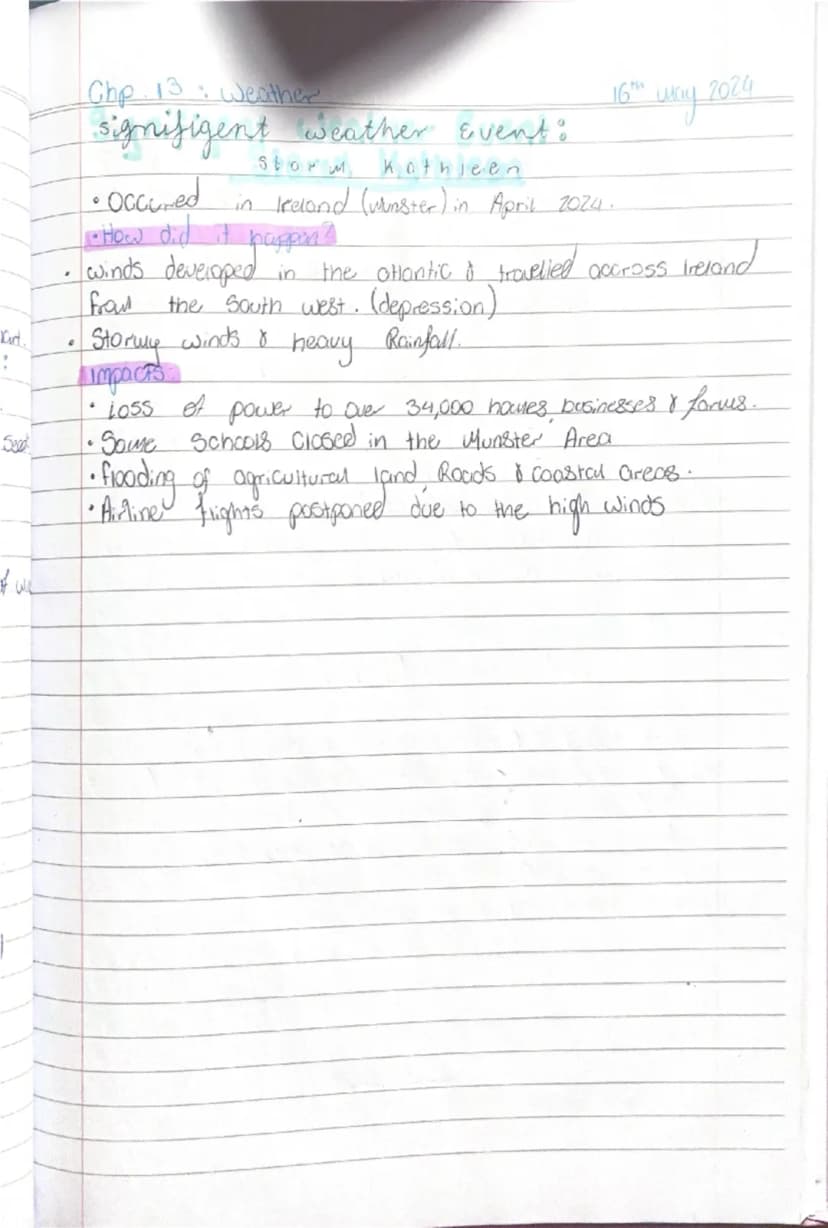 Chp. 13 : Weather 16th May 2024
Signifigent Weather Event:
Storm Kathleen
• Occured in Ireland (Munster) in April 2024.
• How did it happen?
• Winds developed in the atlantic & travelled accross Ireland
from the South west. (depression)
• Stormy winds & heavy Rainfall.
Impacts
• Loss of power to over 34,000 homes, businesses & farms.
• Some schools closed in the Munster Area
• flooding of agricultural land, Roads & coastal areas.
• Airline flights postponed due to the high winds